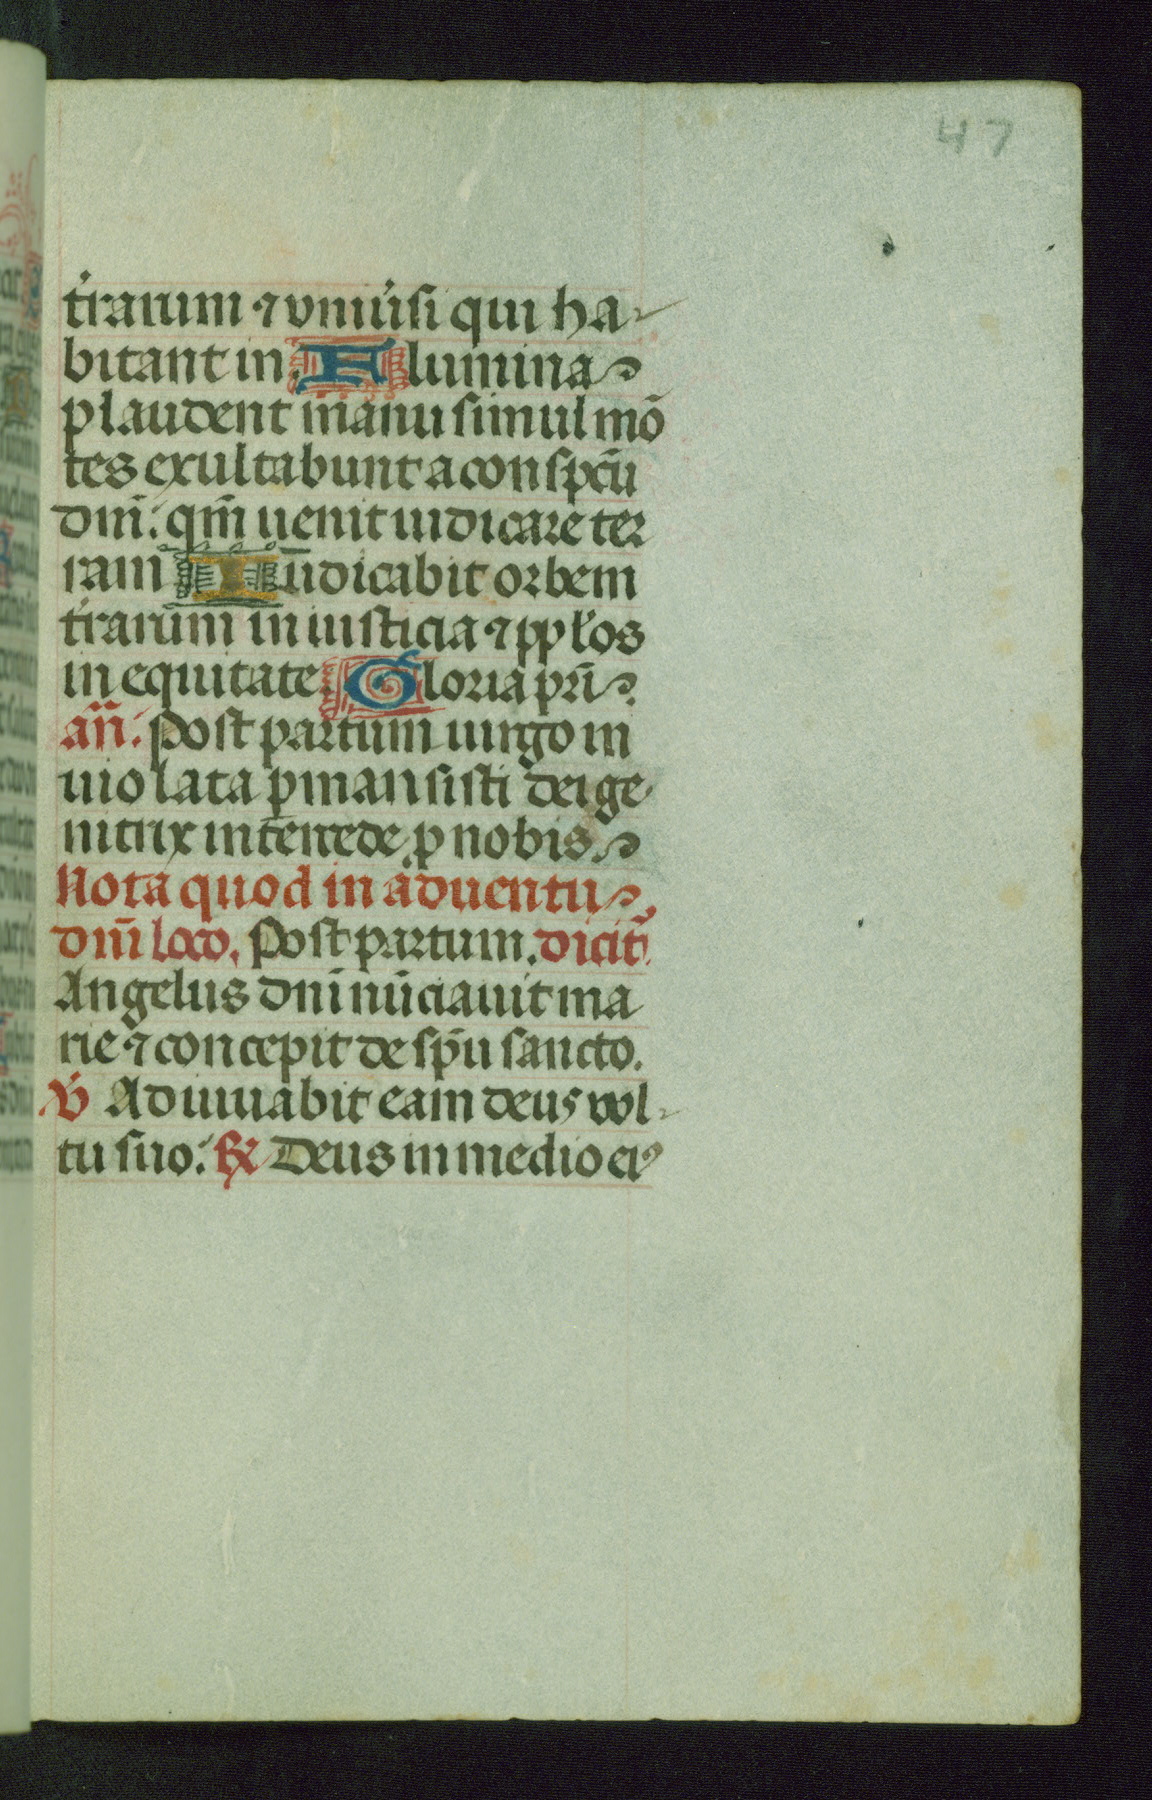 47
t'rarum ⁊ vniu'si qui ha-
bitant in. Flumina
plaudent manu simul mō
tes exultabunt a conspcū
dnī: qm̄ uenit iudicare ter
ram Iudicabit orbem
t'rarum in iusticia ⁊ ppłos
in equitate. Gloria prī.
añ: Post partum uirgo in
uiolata ꝑmansisti dei ge-
nitrix intercede ꝓ nobis.
Nota quod in aduentu
dnī loco. Post partum. dicit᷑.
Angelus dnī nūciauit ma
rie ⁊ concepit de spū sancto.
℣ Adiuuabit eam deus vol-
tu suo: ℟ Deus in medio eiꝰ